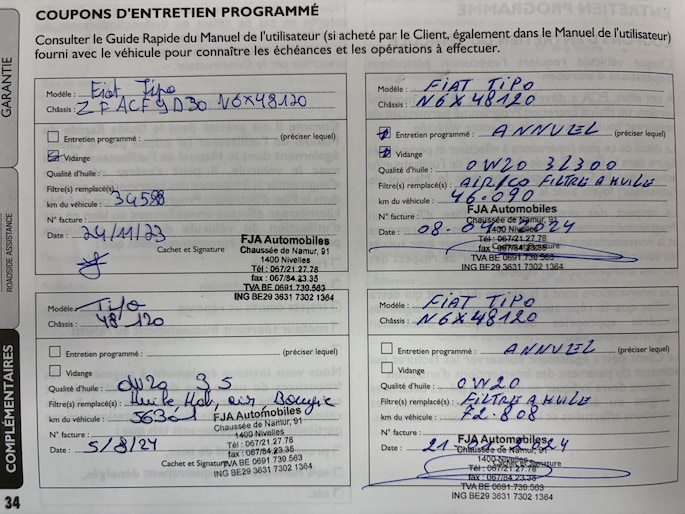 COUPONS D'ENTRETIEN PROGRAMMÉ
Consulter le Guide Rapide du Manuel de l'utilisateur (si acheté par le Client, également dans le Manuel de l'utilisateur)
fourni avec le véhicule pour connaître les échéances et les opérations à effectuer.
GARANTIE
ROADSIDE ASSISTANCE
COMPLÉMENTAIRES
Modèle : Fiat Tipo
Châssis : ZFACF9D30 N6X48120
Entretien programmé : (préciser lequel)
Vidange
Qualité d'huile :
Filtre(s) remplacé(s) :
km du véhicule : 34598
N° facture :
Date : 24/11/23
Cachet et Signature
FJA Automobiles
Chaussée de Namur, 91
1400 Nivelles
Tél : 067/21.27.78
fax : 067/84.23.35
TVA BE 0691.730.563
ING BE29 3631 7302 1364
Modèle : FIAT TIPO
Châssis : N6X48120
Entretien programmé : ANNUEL (préciser lequel)
Vidange
Qualité d'huile : 0W20 3L300
Filtre(s) remplacé(s) : AIR/CO FILTRE A HUILE
km du véhicule : 46.090
N° facture :
Date : 08.04.2024
Cachet et Signature
FJA Automobiles
Chaussée de Namur, 91
1400 Nivelles
Tél : 067/21.27.78
fax : 067/84.23.35
TVA BE 0691.730.563
ING BE29 3631 7302 1364
Modèle : Tipo
Châssis : 48120
Entretien programmé : (préciser lequel)
Vidange
Qualité d'huile : 0W20 35
Filtre(s) remplacé(s) : Huile Hab, air Bougie
km du véhicule : 56301
N° facture :
Date : 5/8/24
Cachet et Signature
FJA Automobiles
Chaussée de Namur, 91
1400 Nivelles
Tél : 067/21.27.78
fax : 067/84.23.35
TVA BE 0691.730.563
ING BE29 3631 7302 1364
Modèle : FIAT TIPO
Châssis : N6X48120
Entretien programmé : ANNUEL (préciser lequel)
Vidange
Qualité d'huile : 0W20
Filtre(s) remplacé(s) : FILTRE A HUILE
km du véhicule : 72.808
N° facture :
Date : 21 2024
Cachet et Signature
FJA Automobiles
Chaussée de Namur, 91
1400 Nivelles
Tél : 067/21.27.78
fax : 067/84.23.35
TVA BE 0691.730.563
ING BE29 3631 7302 1364
34